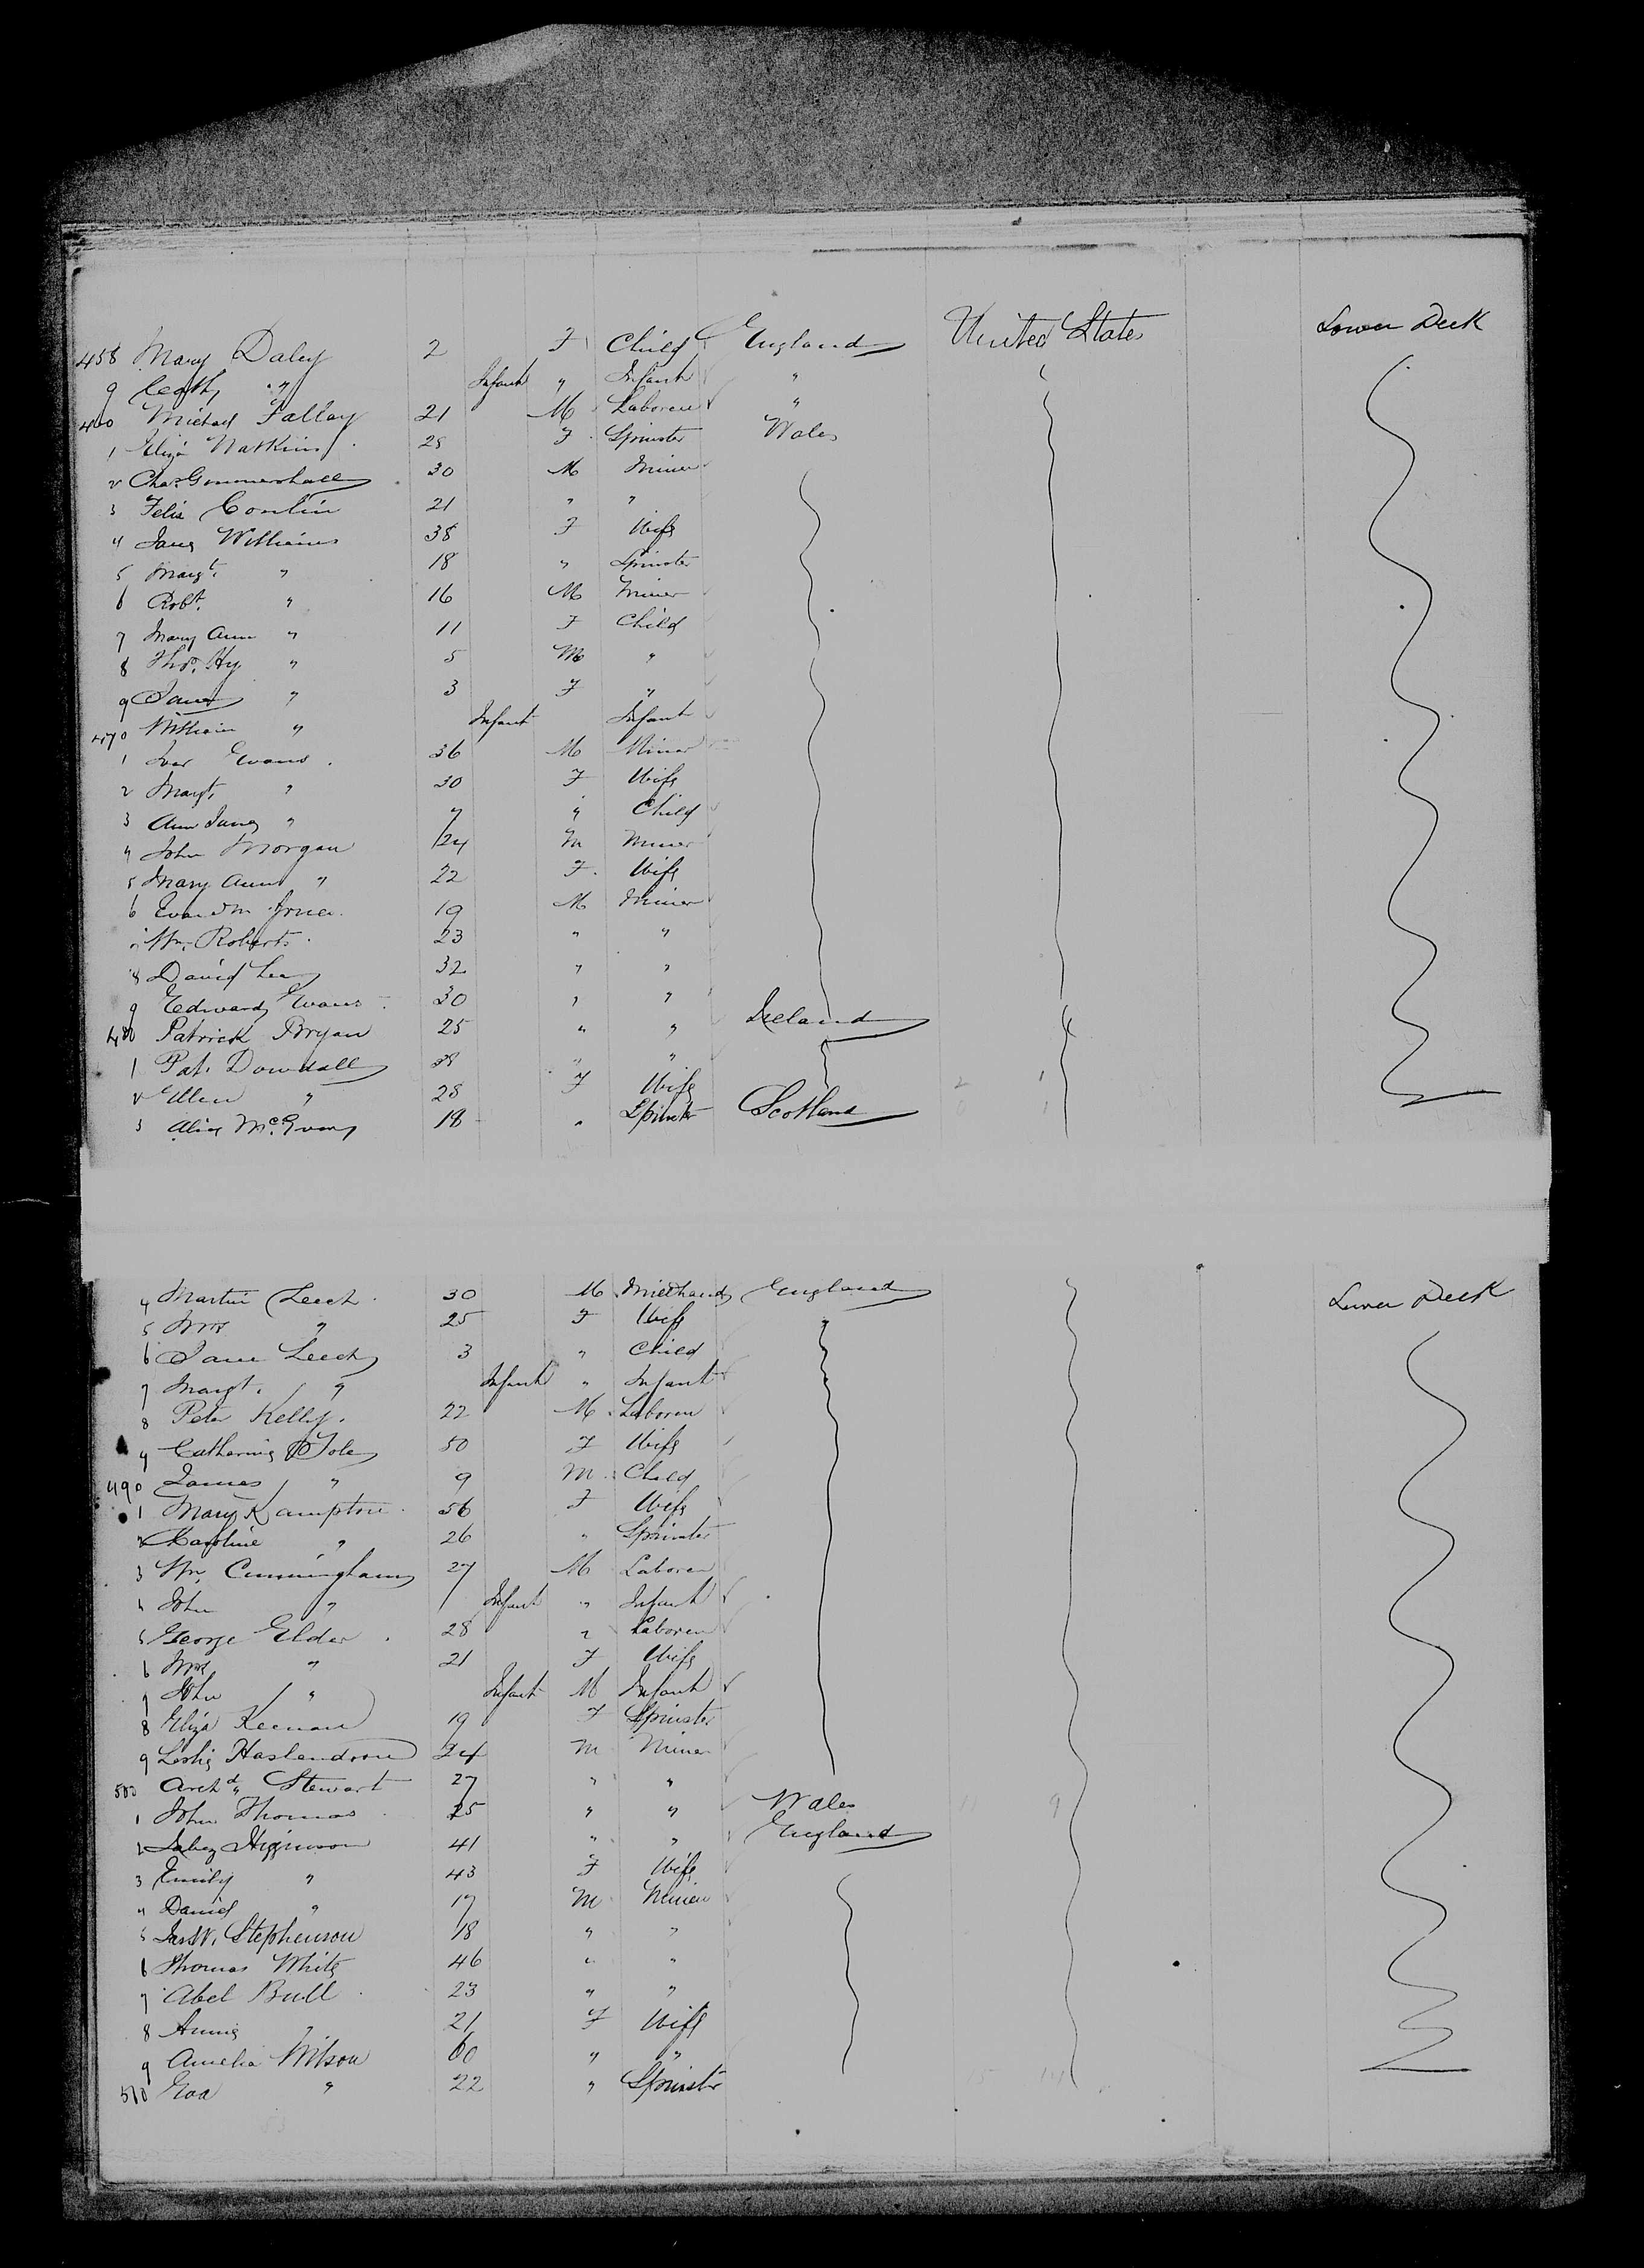 458 Mary Daly 2 F Child England United States Lower Deck
9 " Infant " Infant "
460 Michael Fallay 21 M Laborer "
1 Eliza Watkins 28 F Spinster Wales
2 Chas. Gummershall 30 M Miner
3 Felix Conlin 21 " "
4 Jane Williams 38 F Wife
5 Margt. " 18 " Spinster
6 Robt. " 16 M Miner
7 Mary Ann " 11 F Child
8 Thos. Hy " 5 M "
9 Jane " 3 F "
470 William " Infant Infant
1 Evans 36 M Miner
2 Margt. " 30 F Wife
3 Ann Jane " 7 " Child
4 John Morgan 24 M Miner
5 Mary Ann " 22 F Wife
6 19 M Miner
Wm. Roberts 23 " "
8 David 32 " "
9 Edward Evans 30 " "
480 Patrick Bryan 25 " " Ireland
1 Pat. Dowdall " "
2 Ellen " 28 F Wife
3 Alice 18 " Spinster Scotland
4 Martin Leech 30 M England Lower Deck
5 Mrs " 25 F Wife
6 Jane Leech 3 " Child
7 Margt. " Infant " Infant
8 Peter Kelly 22 M Laborer
9 Catherine 50 F Wife
490 James " 9 M Child
1 Mary Kampton 56 F Wife
2 Karoline " 26 " Spinster
3 Wm. Cunningham 27 M Laborer
4 John " Infant " Infant
5 George Elder 28 " Laborer
6 Mrs " 21 F Wife
7 John " Infant M Infant
8 Eliza Keenan 19 F Spinster
9 Leslie 24 M Miner
500 Archd. Stewart 27 " "
1 John Thomas 25 " " Wales
2 Jabez Higginson 41 " " England
3 Emily " 43 F Wife
4 Daniel " 17 M Miner
5 Jas. W. Stephenson 18 " "
6 Thomas White 46 " "
7 Abel Bull 23 " "
8 Annie " 21 F Wife
9 Amelia Wilson 60 " "
510 Eva " 22 " Spinster